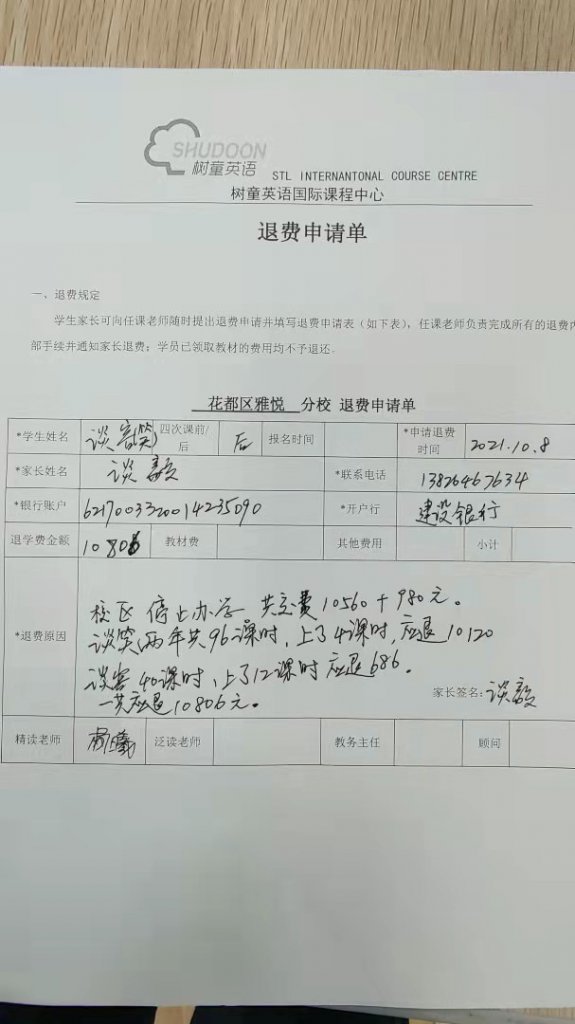 SHUDOON
树童英语
STL INTERNANTONAL COURSE CENTRE
树童英语国际课程中心
退费申请单
一、退费规定
学生家长可向任课老师随时提出退费申请并填写退费申请表（如下表），任课老师负责完成所有的退费内
部手续并通知家长退费；学员已领取教材的费用均不予退还.
花都区雅悦 分校 退费申请单
*学生姓名 谈客(笑) 四次课前/后 后 报名时间 *申请退费时间 2021.10.8
*家长姓名 谈毅 *联系电话 13826467634
*银行账户 6217003320014235090 *开户行 建设银行
退学费金额 10806 教材费 其他费用 小计
*退费原因
校区停止办学 共交费10560+980元。
谈笑(两年共96课时，上了4课时,应退10120
谈客40课时，上了12课时应退686。
一共应退10806元。
家长签名: 谈毅
精读老师 泛读老师 教务主任 顾问